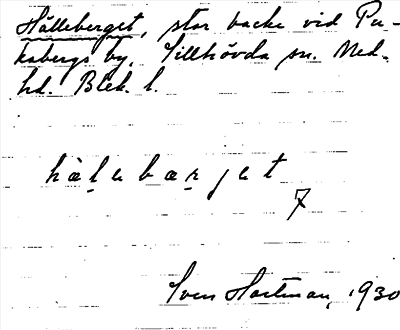 Hålleberget, stor backe vid Pu-
kabergs by, Tillhövda sn. Med.
hd. Blek. l.
hàlebærjet
7
Sven Hartman, 1930